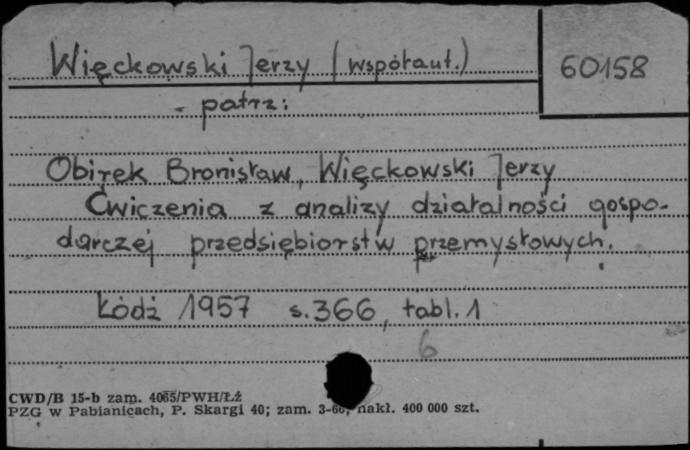 Więckowski Jerzy (współaut.)
60158
patrz:
Obirek Bronisław, Więckowski Jerzy
Ćwiczenia z analizy działalności gospo-
darczej przedsiębiorstw przemysłowych.
Łódź 1957 s.366, tabl.1
6
CWD/B 15-b zam. 4065/PWH/Łź
PZG w Pabianicach, P. Skargi 40; zam. 3-66; nakł. 400 000 szt.